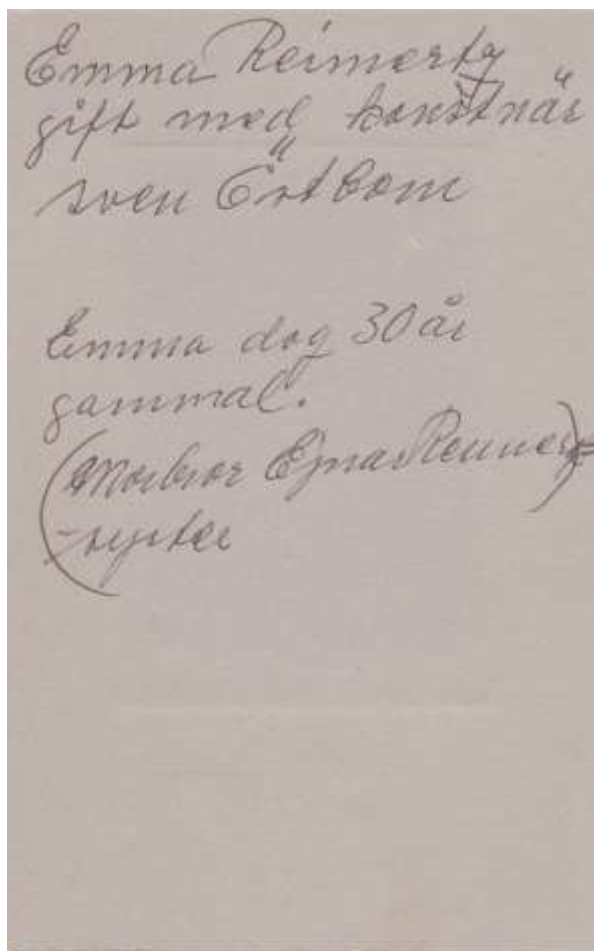 Emma Reimertz
gift med konstnär
sven Örtbom
Emma dog 30 år
gammal.
(Morbror Ejnar
-syster